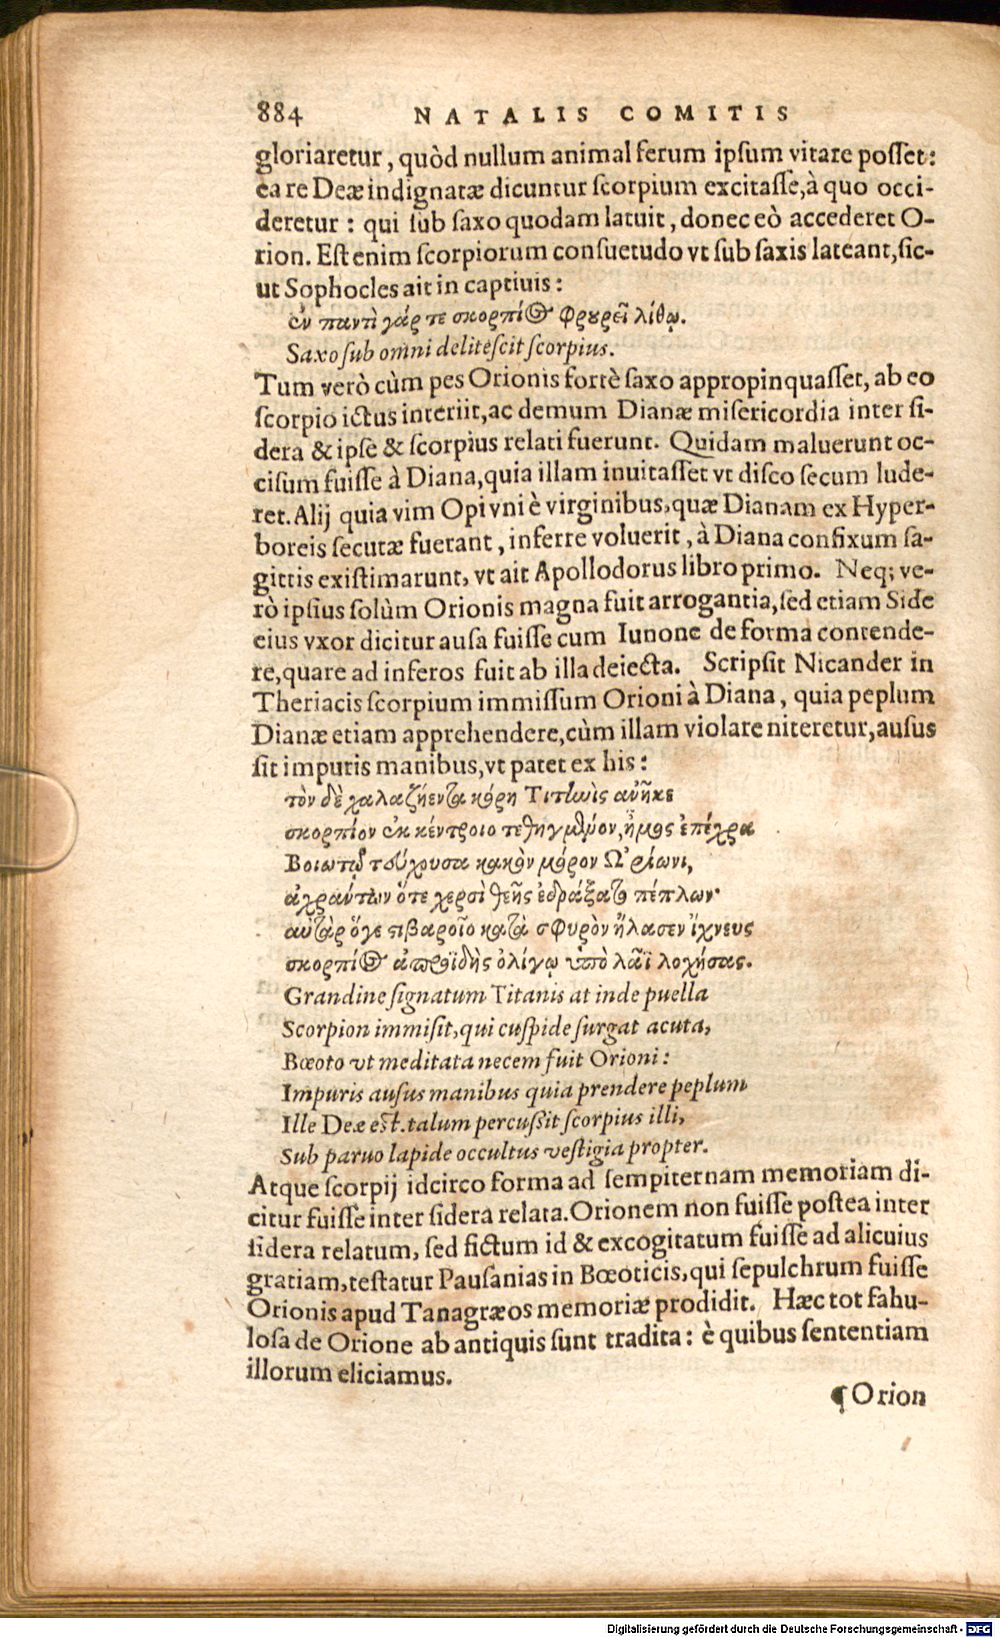 884 NATALIS COMITIS
gloriaretur, quòd nullum animal ferum ipsum vitare posset:
ea re Deæ indignatæ dicuntur scorpium excitasse, à quo occi-
deretur: qui sub saxo quodam latuit, donec eò accederet O-
rion. Est enim scorpiorum consuetudo vt sub saxis lateant, sic-
ut Sophocles ait in captiuis:
ἐν παντὶ γάρ τε σκορπίος φρουρεῖ λίθῳ.
Saxo sub omni delitescit scorpius.
Tum verò cùm pes Orionis fortè saxo appropinquasset, ab eo
scorpio ictus interiit, ac demum Dianæ misericordia inter si-
dera & ipse & scorpius relati fuerunt. Quidam maluerunt oc-
cisum fuisse à Diana, quia illam inuitasset vt disco secum lude-
ret. Alij quia vim Opi vni è virginibus, quæ Dianam ex Hyper-
boreis secutæ fuerant, inferre voluerit, à Diana confixum sa-
gittis existimarunt, vt ait Apollodorus libro primo. Neq; ve-
rò ipsius solùm Orionis magna fuit arrogantia, sed etiam Side
eius vxor dicitur ausa fuisse cum Iunone de forma contende-
re, quare ad inferos fuit ab illa deiecta. Scripsit Nicander in
Theriacis scorpium immissum Orioni à Diana, quia peplum
Dianæ etiam apprehendere, cùm illam violare niteretur, ausus
sit impuris manibus, vt patet ex his:
τὸν δὲ χαλαζήεντα κόρη Τιτηνὶς ἀνῆκε
σκορπίον ἐκ κέντροιο τεθηγμένον, ἦμος ἐπέχρα
Βοιωτῷ τεύχουσα κακὸν μόρον Ὠρίωνι,
ἀχράντων ὅτε χερσὶ θεῆς ἐδράξατο πέπλων·
αὐτὰρ ὅγε στιβαροῖο κατὰ σφυρὸν ἤλασεν ἴχνευς
σκορπίος ἀπροϊδὴς ὀλίγῳ ὑπὸ λᾶϊ λοχήσας.
Grandine signatum Titanis at inde puella
Scorpion immisit, qui cuspide surgat acuta,
Bœoto vt meditata necem fuit Orioni:
Impuris ausus manibus quia prendere peplum
Ille Deæ est. talum percussit scorpius illi,
Sub paruo lapide occultus vestigia propter.
Atque scorpij idcirco forma ad sempiternam memoriam di-
citur fuisse inter sidera relata. Orionem non fuisse postea inter
sidera relatum, sed fictum id & excogitatum fuisse ad alicuius
gratiam, testatur Pausanias in Bœoticis, qui sepulchrum fuisse
Orionis apud Tanagræos memoriæ prodidit. Hæc tot fahu-
losa de Orione ab antiquis sunt tradita: è quibus sententiam
illorum eliciamus.
¶Orion
Digitalisierung gefördert durch die Deutsche Forschungsgemeinschaft - DFG